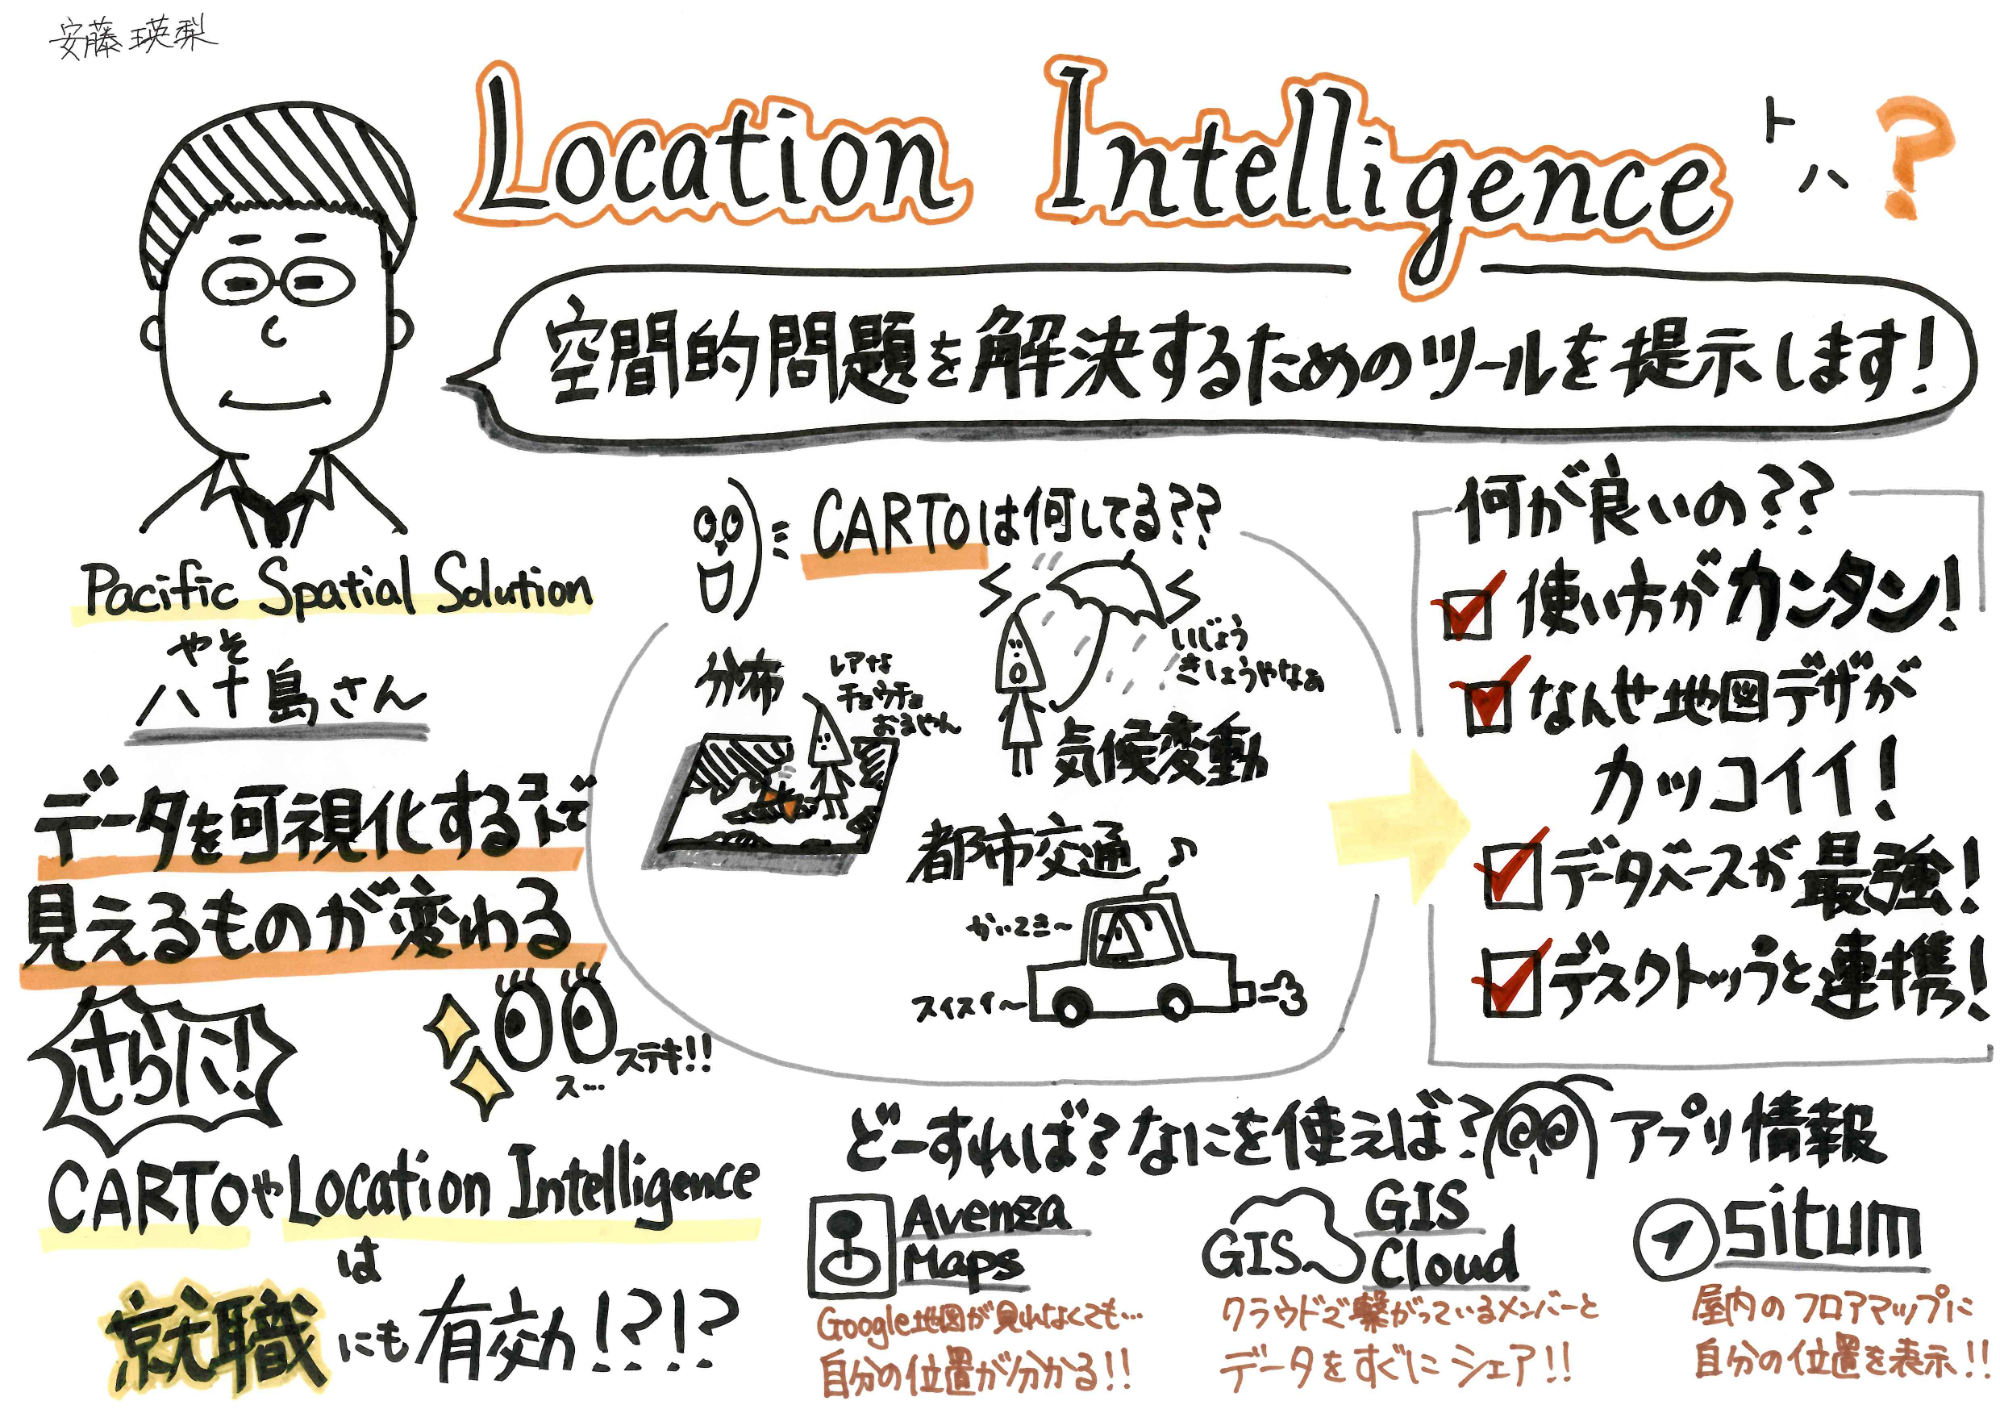 安藤瑛梨
Location Intelligence トハ?
空間的問題を解決するためのツールを提示します!
Pacific Spatial Solution
やそ
八十島さん
データを可視化するコトで
見えるものが変わる
さらに!
ス… ステキ!!
CARTOやLocation Intelligence
は
就職にも有効!?!?
CARTOは何してる??
分布
レアな
チョウチョ
おるやん
いじょう
きしょうやなぁ
気候変動
都市交通♪
かいてき〜
スイスイ〜
何が良いの??
使い方がカンタン!
なんせ地図デザが
カッコイイ!
データベースが最強!
デスクトップと連携!
どーすれば?なにを使えば? アプリ情報
Avenza
Maps
Google地図が見れなくても…
自分の位置が分かる!!
GIS
GIS
Cloud
クラウドで繋がっているメンバーと
データをすぐにシェア!!
situm
屋内のフロアマップに
自分の位置を表示!!